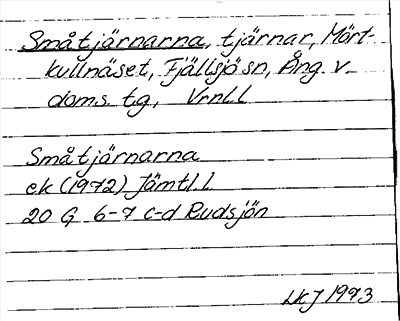 Småtjärnarna, tjärnar, Mört-
kullnäset, Fjällsjö sn, Ång. v.
doms. tg, Vrnl.l
Småtjärnarna
ek (1972) Jämtl. l.
20 G 6-7 c-d Rudsjön
LKJ 1973